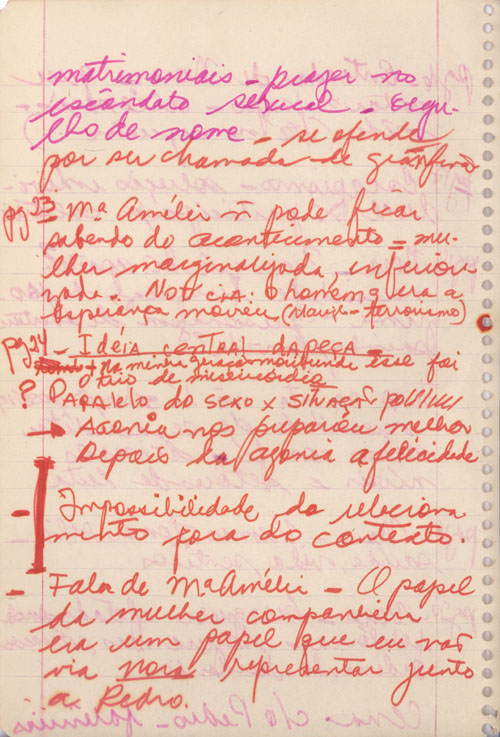 matrimoniais - prazer no
escândalo sexual - orgu-
lho de nome - se ofende
por ser chamada de granfina
pg 23 - Mª Amélia ñ pode ficar
sabendo do acontecimento = mu-
lher marginalizada, inferiori
zada. NOTÍCIA: o homem q era a
esperança morreu (Marigh - terrorismo)
pg 24 - IDÉIA CENTRAL DA PEÇA -
+ Na minha geração moribunda esse foi
o tiro de misericórdia
? PARALELO DO SEXO X SITUAÇÃO política
→ Agonia nos preparou melhor
Depois da agonia a felicidade
- Impossibilidade do relaciona
mento fora do contexto.
- Fala de Mª Amélia - O papel
da mulher companheira
era um papel que eu não
via representar junto
a Pedro.